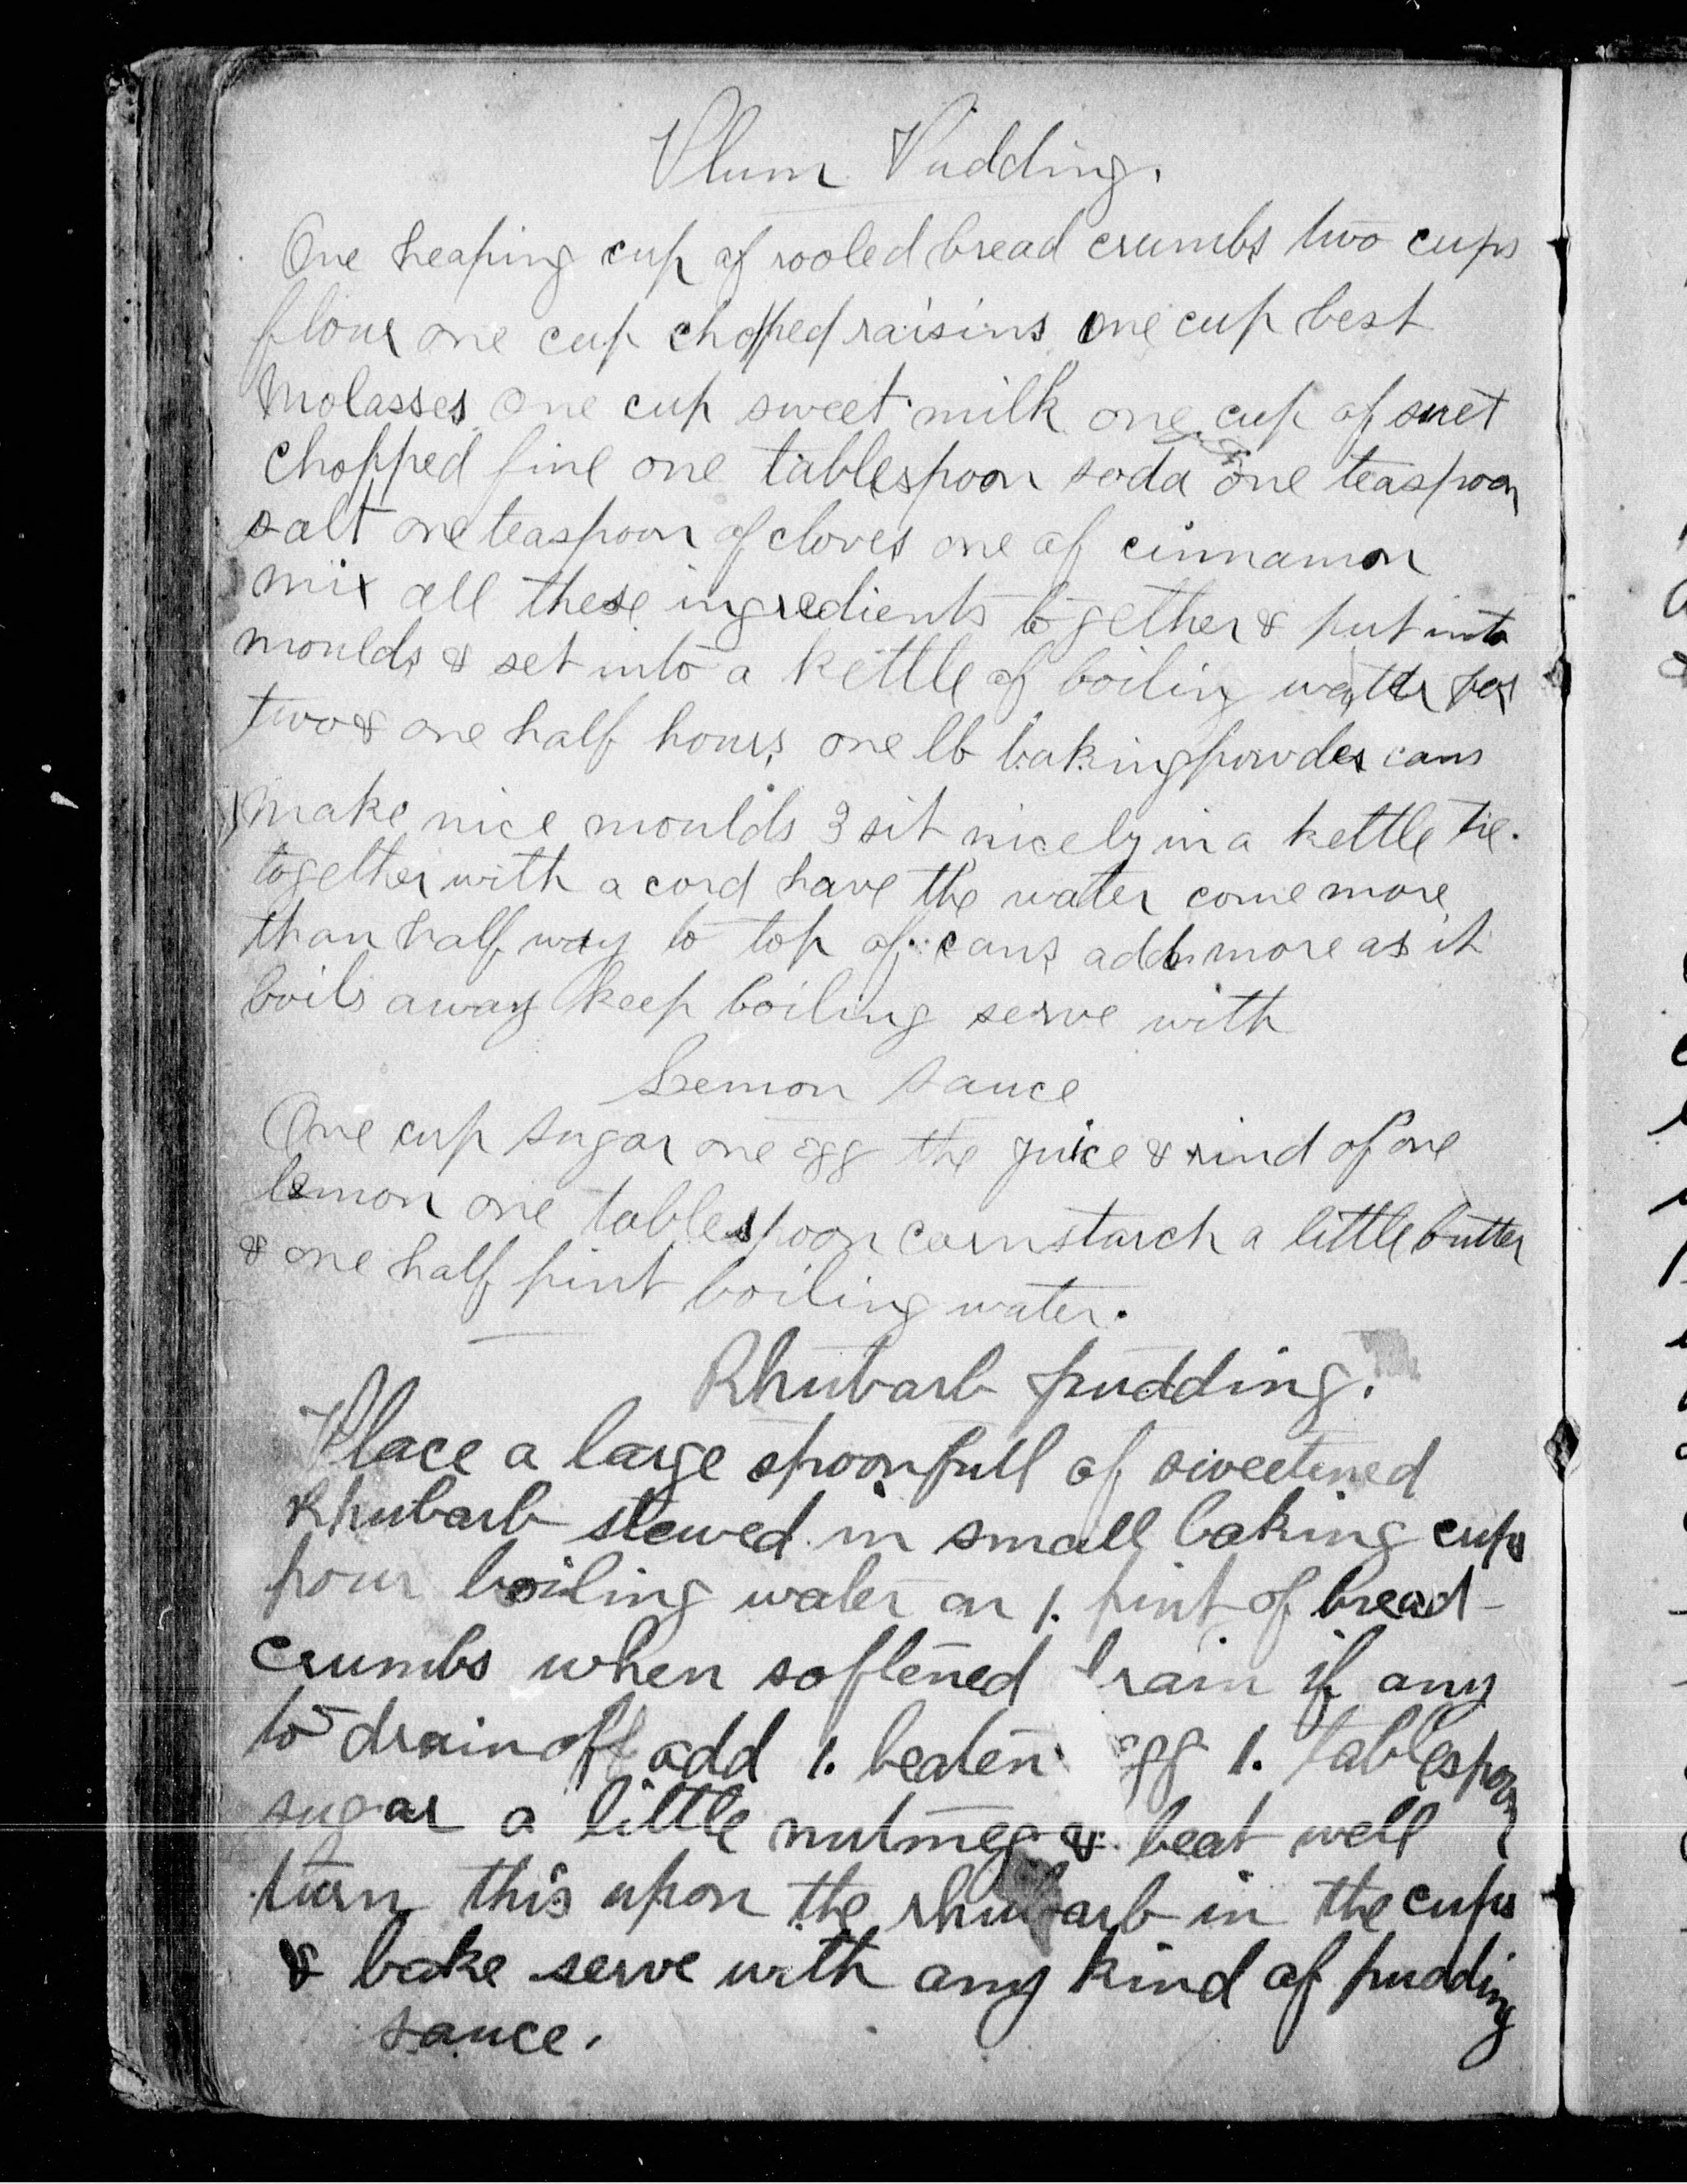 Plum Pudding.
One heaping cup of rooled bread crumbs two cups
flour one cup chopped raisins one cup best
Molasses one cup sweet milk one cup of suet
chopped fine one tablespoon soda one teaspoon
salt one teaspoon of cloves one of cinnamon
mix all these ingredients together & put into
moulds & set into a kettle of boiling water for
two & one half hours one lb baking powder cans
make nice moulds 3 sit nicely in a kettle tie
together with a cord have the water come more
than half way to top of cans add more as it
boils away keep boiling serve with
Lemon Sauce
One cup sugar one egg the juice & rind of one
lemon one tablespoon cornstarch a little butter
& one half pint boiling water.
Rhubarb pudding.
Place a large spoonfull of sweetened
Rhubarb stewed in small baking cups
pour boiling water on 1. pint of bread-
crumbs when softened drain if any
to drain off add 1. beaten egg 1. tablespoon
sugar a little nutmeg & beat well
turn this upon the rhubarb in the cups
& bake serve with any kind of pudding
sauce.